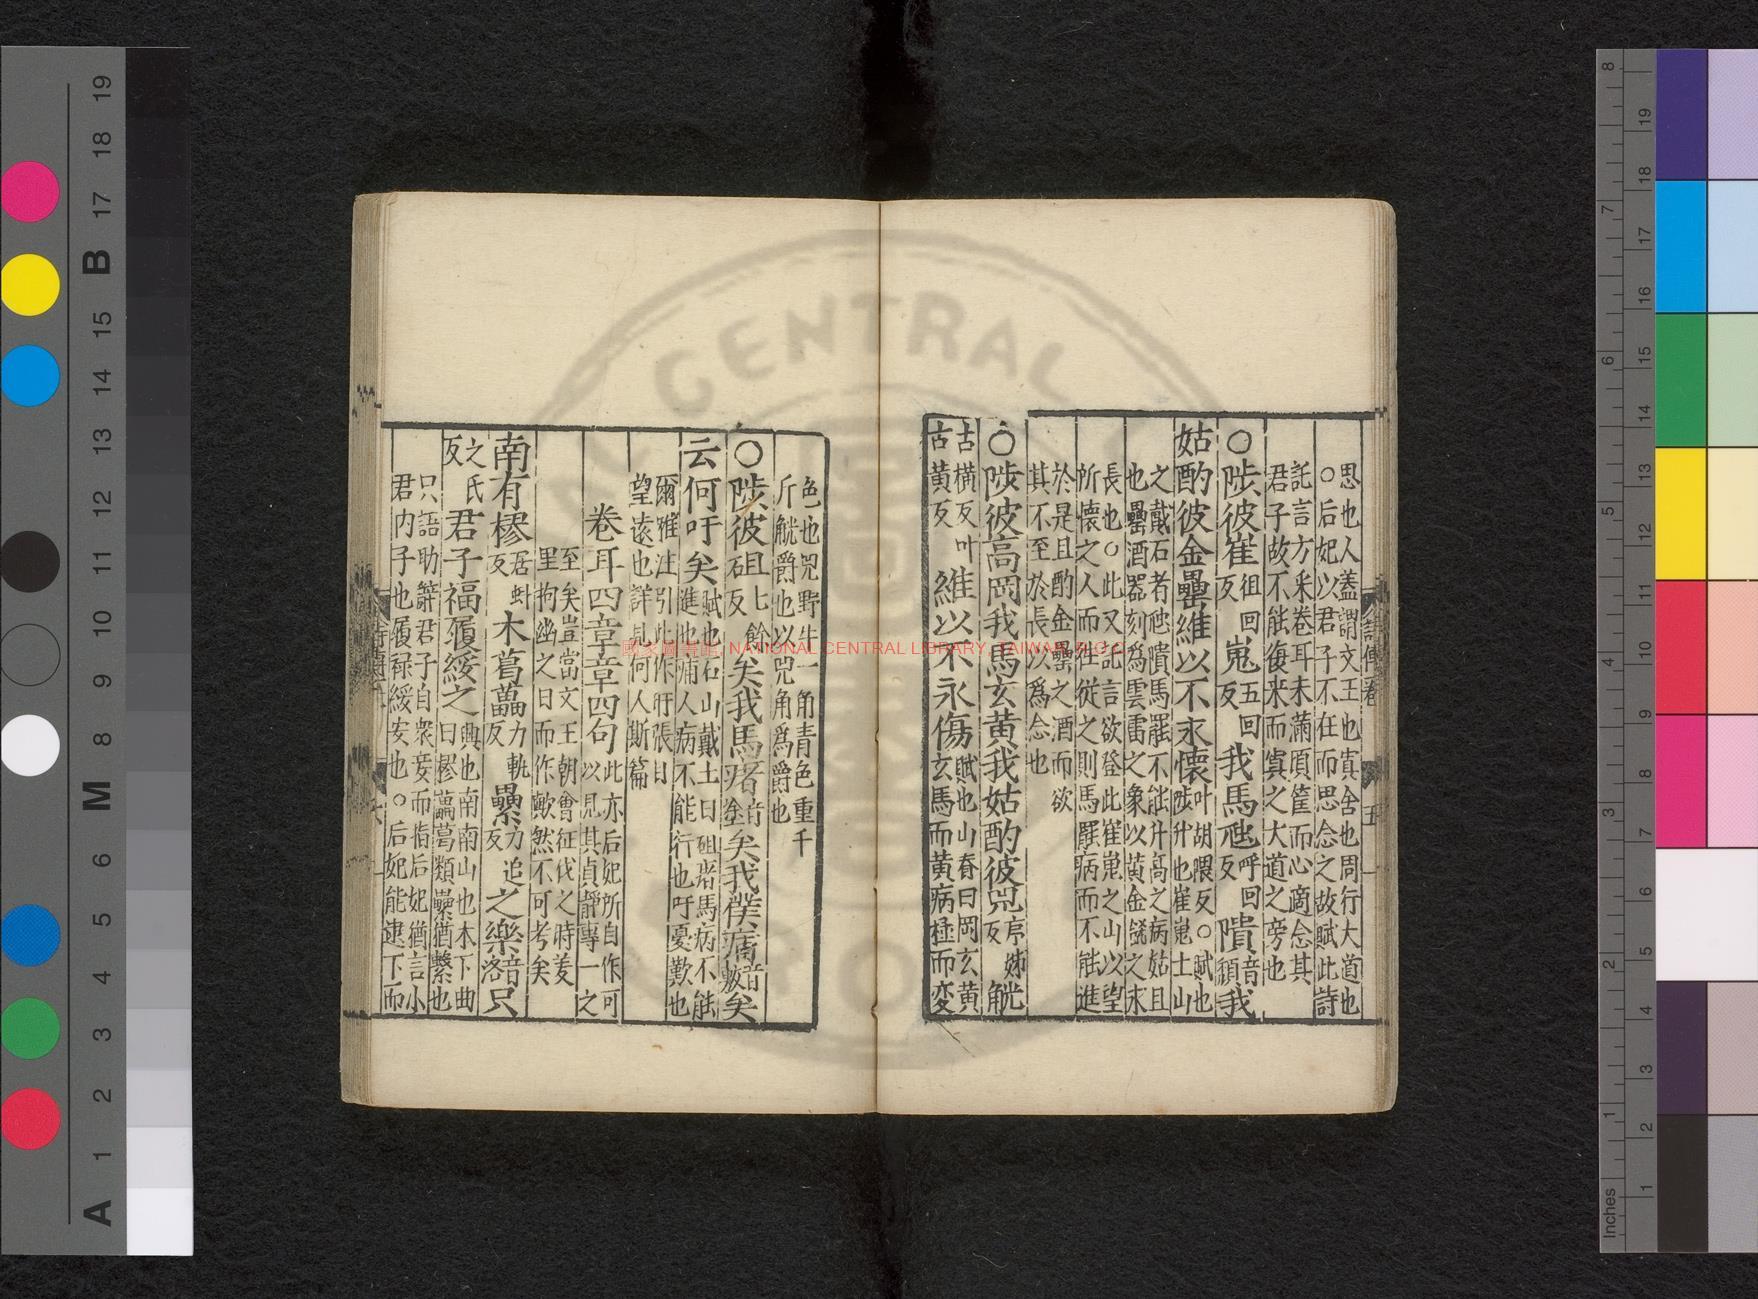 思也人蓋謂文王也寘舍也周行大道也
○后妃以君子不在而思念之故賦此詩
託言方采卷耳未滿頃筐而心適念其
君子故不能復采而寘之大道之旁也
○陟彼崔徂回反嵬五回反我馬虺呼回反隤音頹我
姑酌彼金罍維以不永懷叶胡隈反○賦也陟升也崔嵬土山
之戴石者虺隤馬罷不能升高之病姑且
也罍酒器刻為雲雷之象以黃金飾之永
長也○此又託言欲登此崔嵬之山以望
所懷之人而往從之則馬罷病而不能進
於是且酌金罍之酒而欲
其不至於長以為念也
○陟彼高岡我馬玄黃我姑酌彼兕序姊反觥
古橫反叶古黃反維以不永傷賦也山脊曰岡玄黃玄馬而黃病極而変
色也兕野牛一角青色重千
斤觥爵也以兕角為爵也
○陟彼砠七餘反矣我馬瘏音塗矣我僕痡音敷矣
云何吁矣賦也石山戴土曰砠瘏馬病不能進也痡人病不能行也吁憂歎也
爾雅注引此作盱張目
望遠也詳見何人斯篇
卷耳四章章四句此亦后妃所自作可以見其貞靜專一之
至矣豈當文王朝會征伐之時羑
里拘幽之日而作歟然不可考矣
南有樛居虯反木葛藟力軌反纍力追反之樂音洛只
之氏反君子福履綏之興也南南山也木下曲曰樛藟葛類纍猶繫也
只語助辭君子自衆妾而指后妃猶言小
君内子也履祿綏安也○后妃能逮下而
詩傳卷一
五
六
國家圖書館, NATIONAL CENTRAL LIBRARY, TAIWAN, R.O.C
CENTRAL